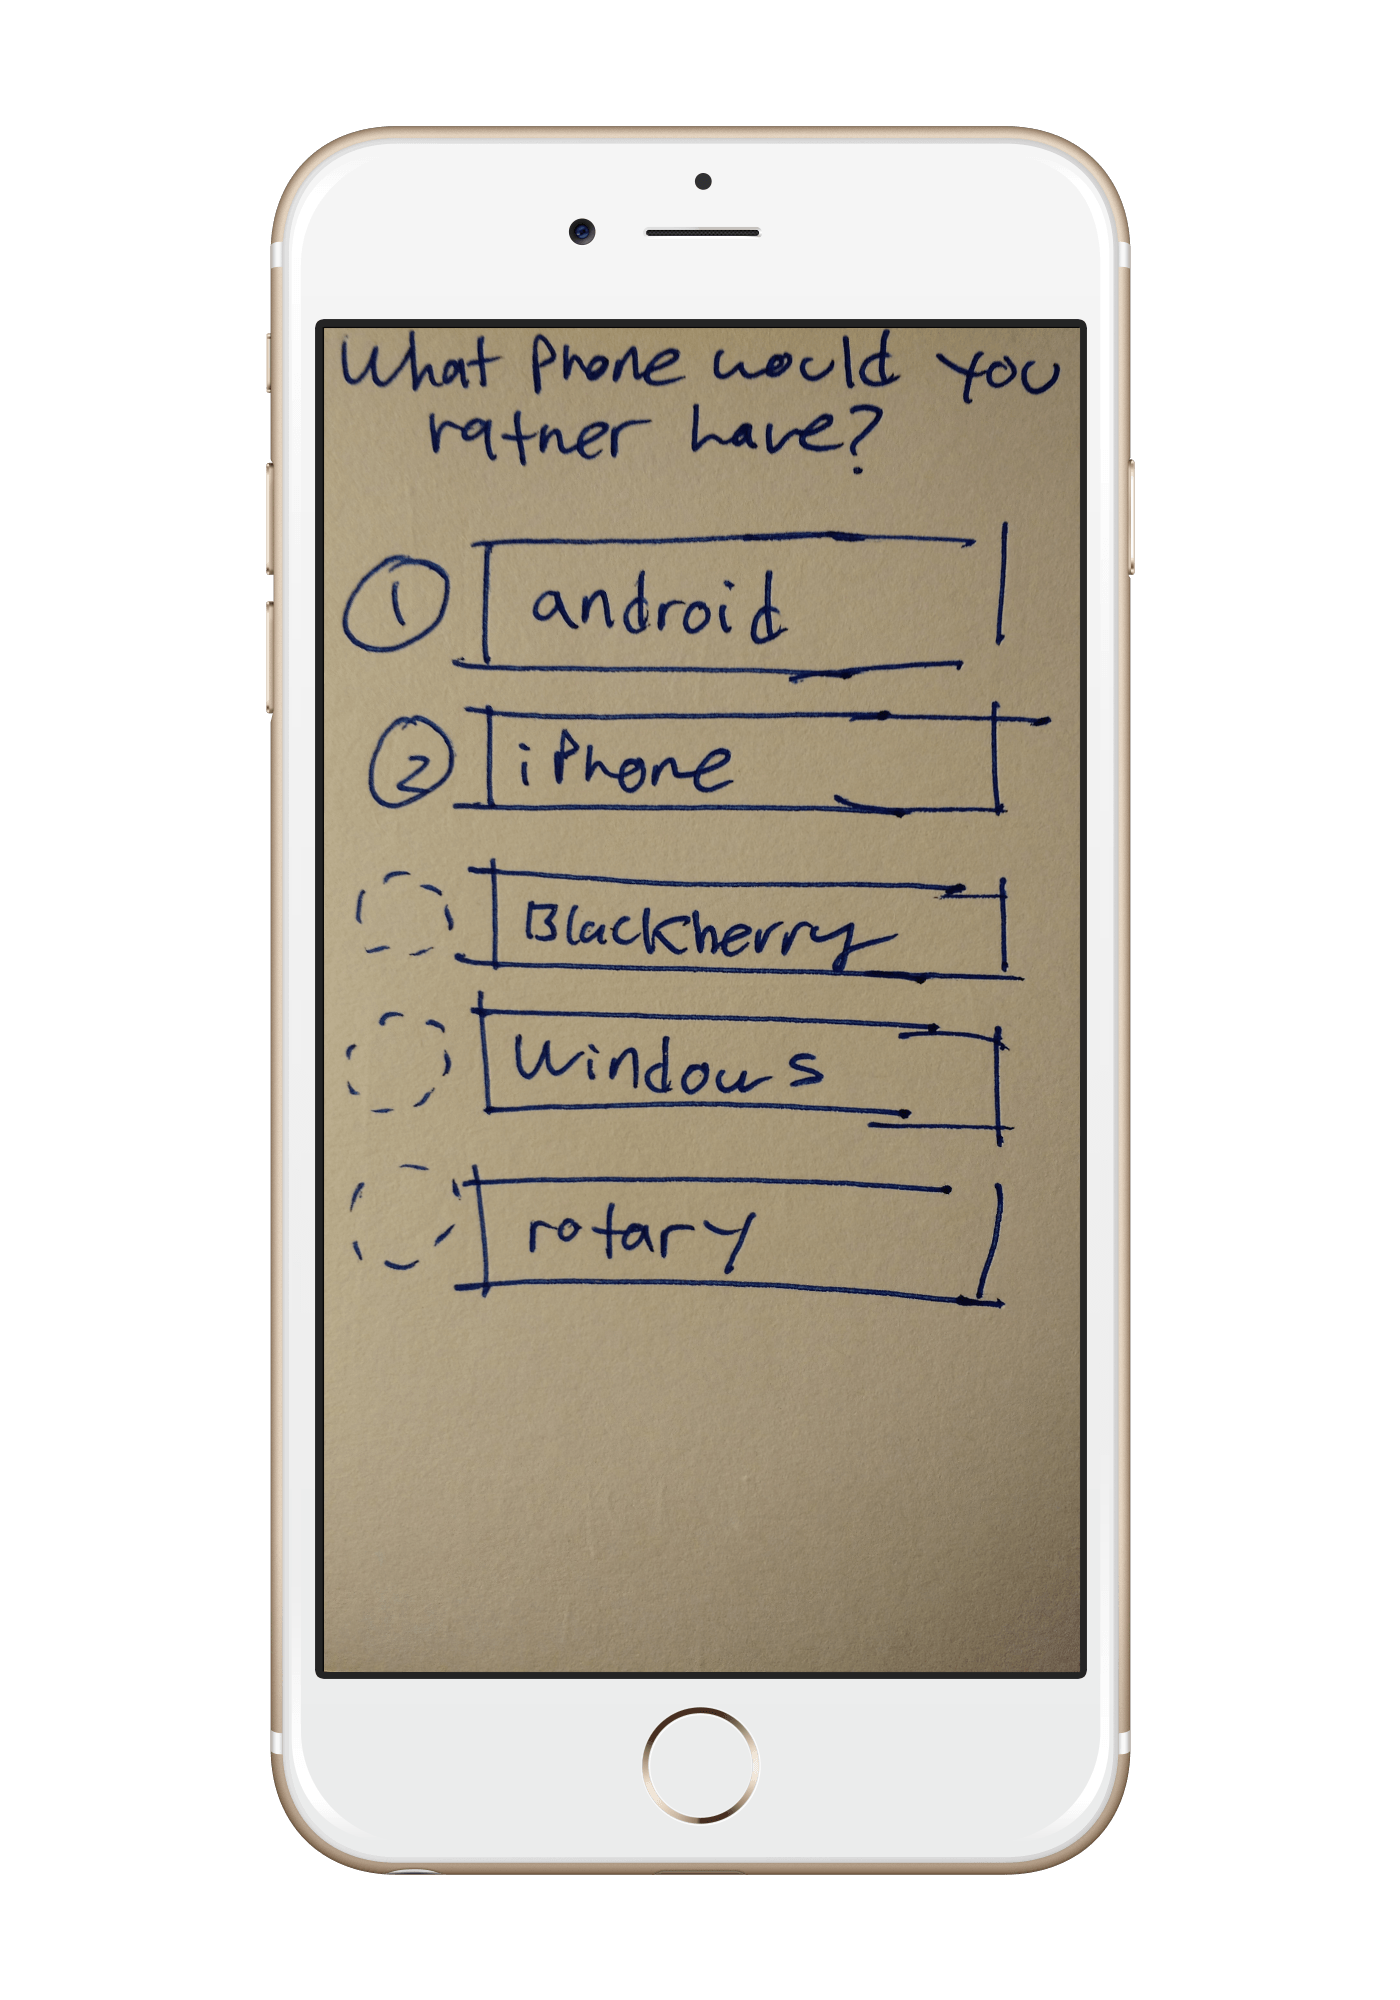 What Phone would you
rather have?
1 android
2 iPhone
Blackberry
Windows
rotary